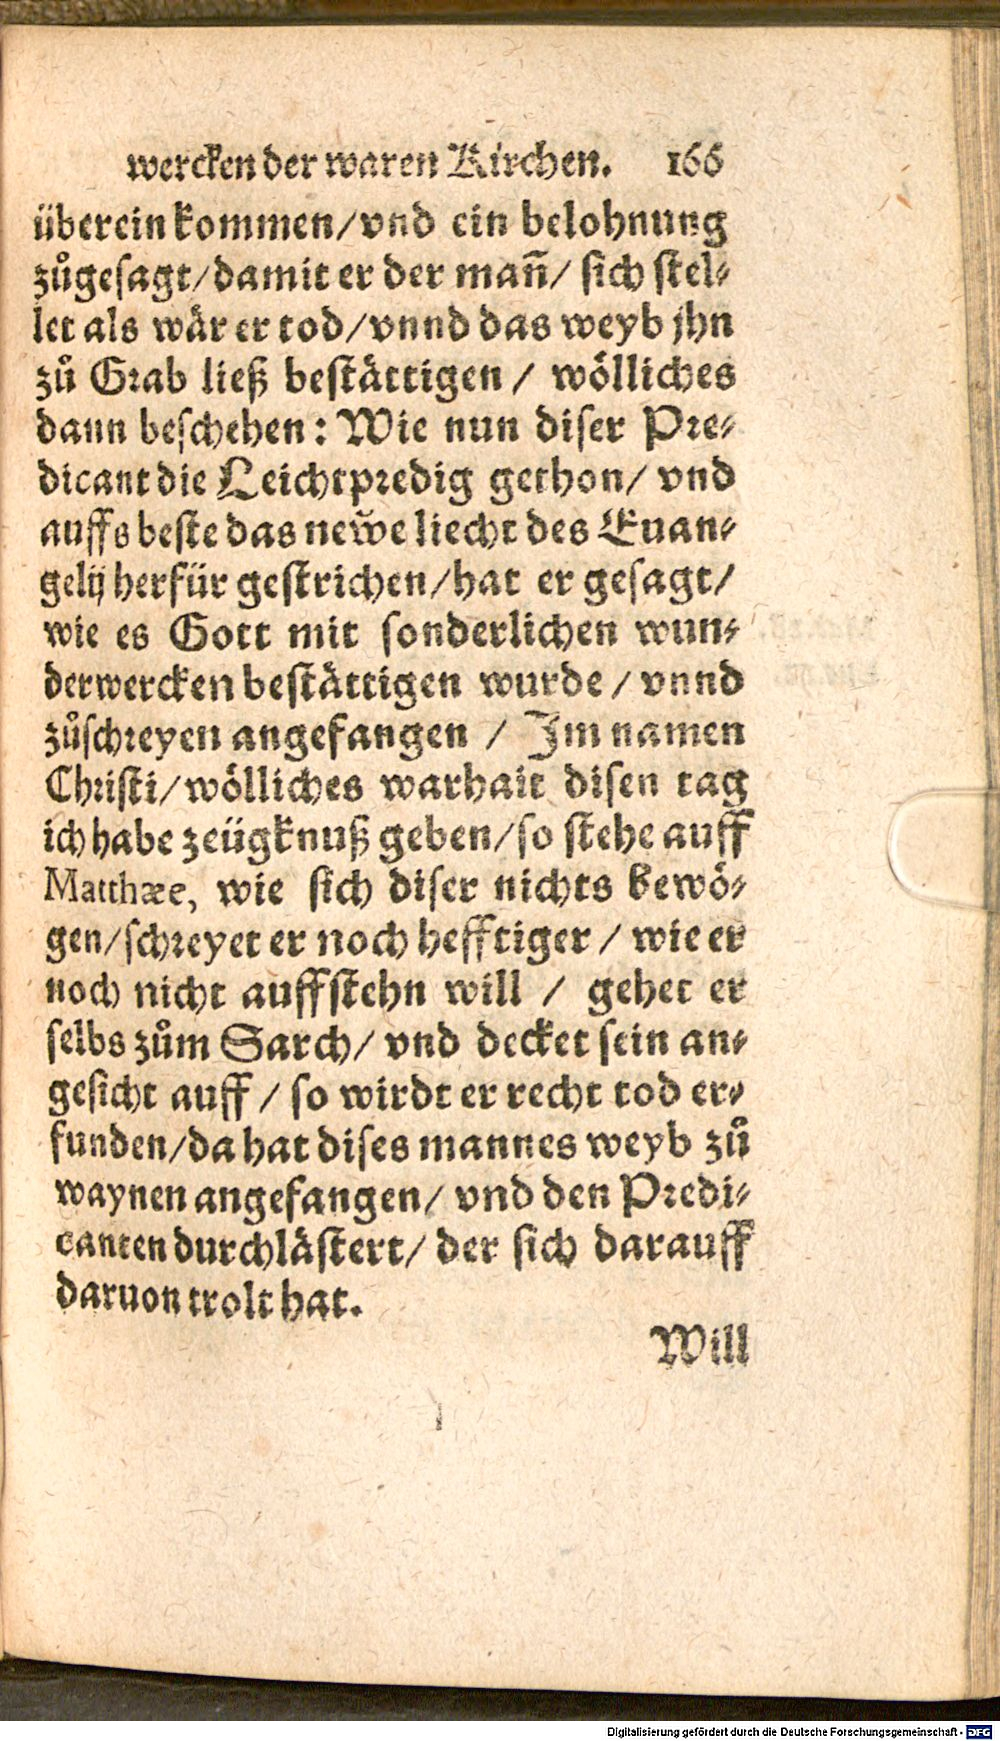 wercken der waren Kirchen. 166
überein kommen/vnd ein belohnung
zůgesagt/damit er der mañ/ sich stel⸗
let als wär er tod/vnnd das weyb jhn
zů Grab ließ bestättigen / wölliches
dann beschehen: Wie nun diser Pre⸗
dicant die Leichtpredig gethon/ vnd
auffs beste das new̃e liecht des Euan⸗
gelij herfür gestrichen/hat er gesagt/
wie es Gott mit sonderlichen wun⸗
derwercken bestättigen wurde / vnnd
zůschreyen angefangen / Im namen
Christi/wölliches warhait disen tag
ich habe zeügknuß geben/so stehe auff
Matthæe, wie sich diser nichts bewö⸗
gen/schreyet er noch hefftiger / wie er
noch nicht auffstehn will / gehet er
selbs zům Sarch/ vnd decket sein an⸗
gesicht auff / so wirdt er recht tod er⸗
funden/da hat dises mannes weyb zů
waynen angefangen/ vnd den Predi⸗
canten durchlästert/ der sich darauff
daruon trolt hat.
Will
Digitalisierung gefördert durch die Deutsche Forschungsgemeinschaft - DFG